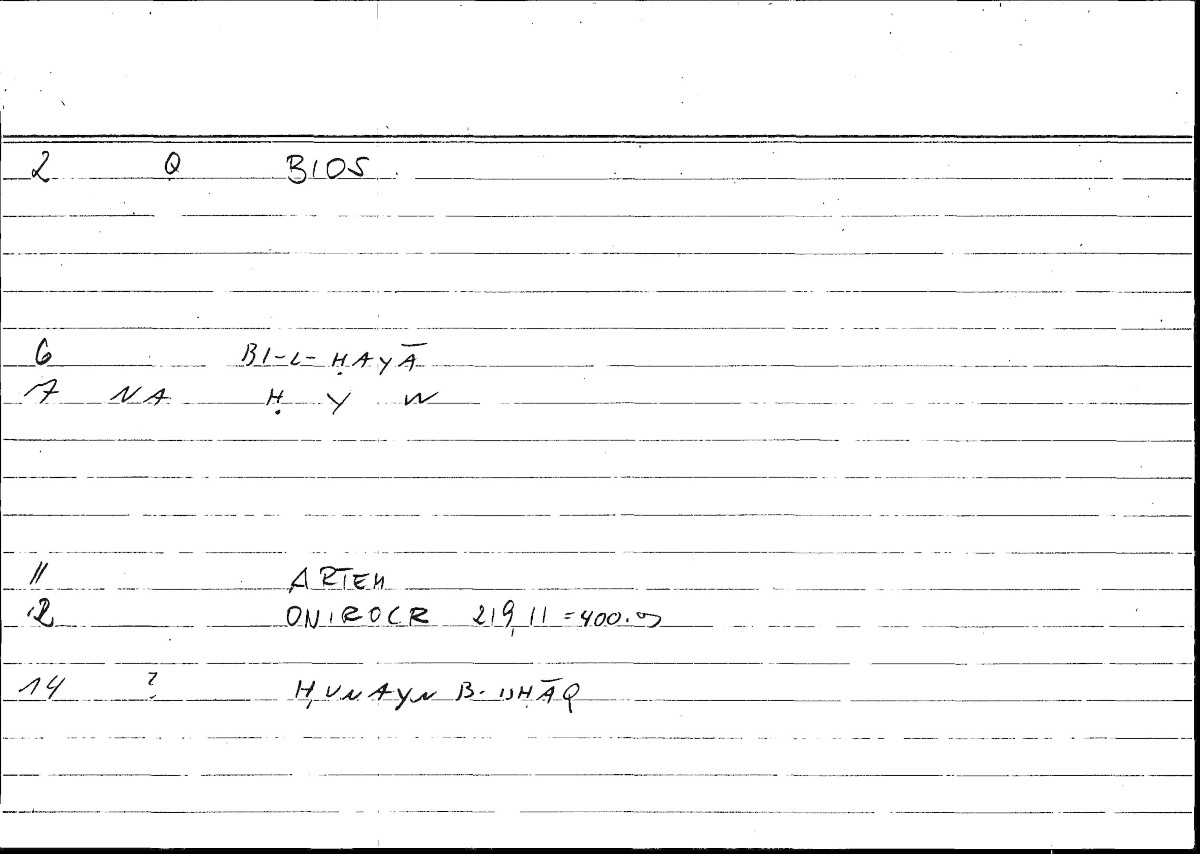 2 Q BIOS
6 BI-L-ḤAYĀ
7 NA Ḥ Y W
11 ARTEM
12 ONIROCR 219,11 = 400.
14 ? ḤUNAYN B. ISḤĀQ